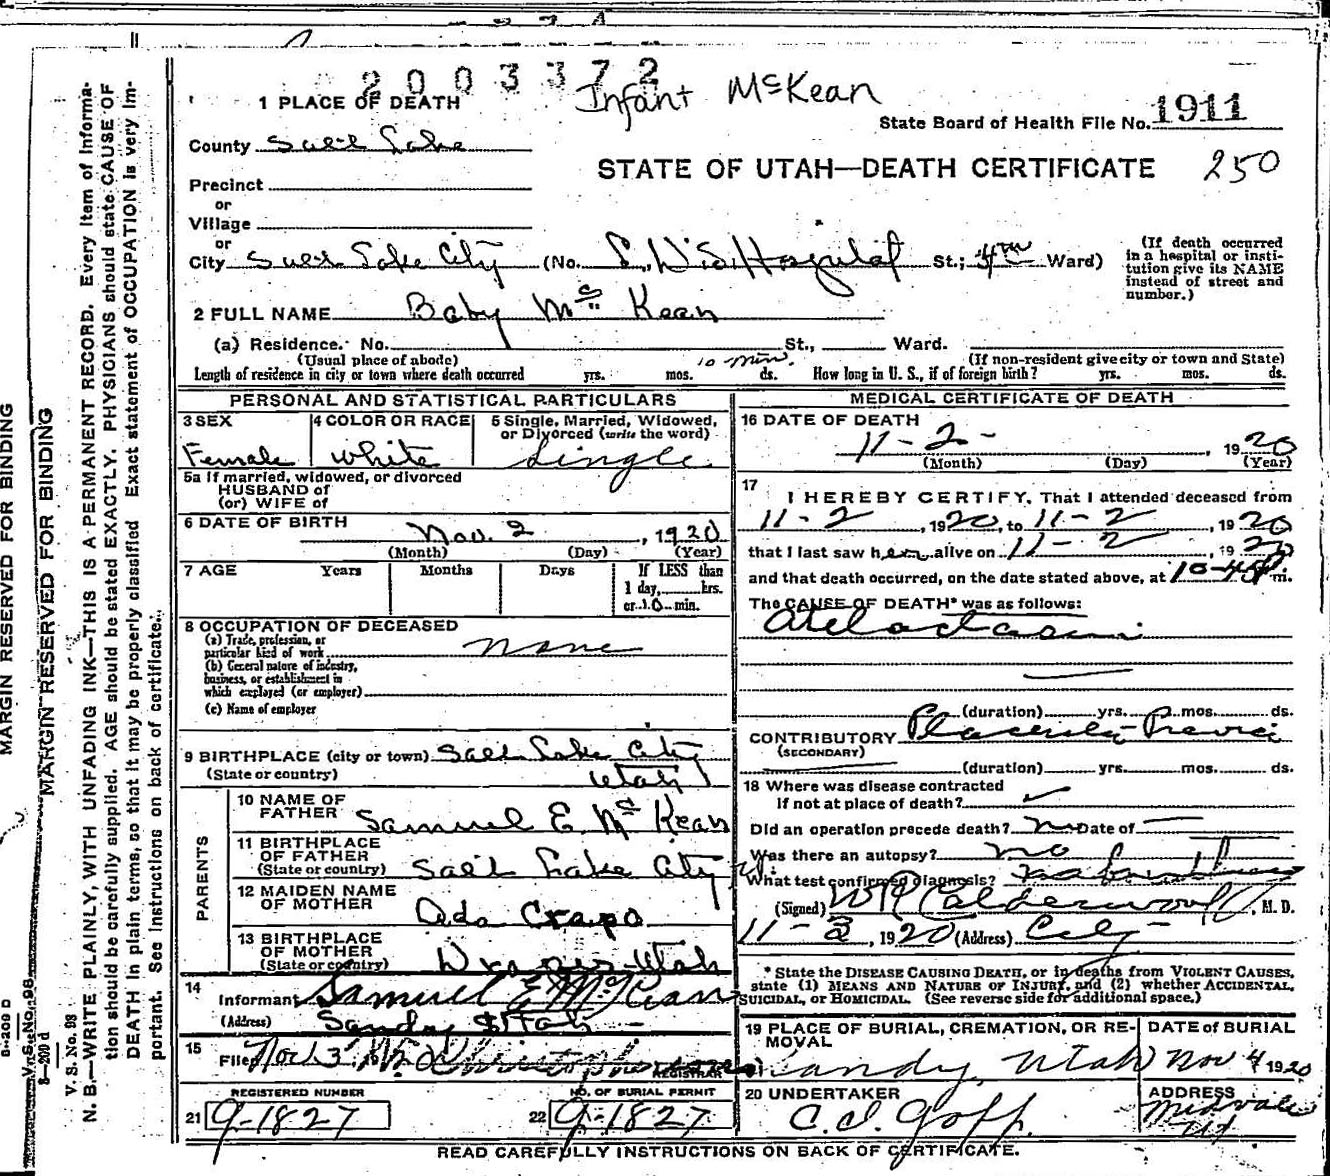 2003372
Infant McKean
1 PLACE OF DEATH
State Board of Health File No. 1911
County Salt Lake
STATE OF UTAH—DEATH CERTIFICATE 250
Precinct
or
Village
or
City Salt Lake City (No. L.D.S. Hospital St.; 4th Ward)
(If death occurred in a hospital or institution give its NAME instead of street and number.)
2 FULL NAME Baby McKean
(a) Residence. No. St., Ward.
(Usual place of abode) (If non-resident give city or town and State)
Length of residence in city or town where death occurred yrs. mos. 10 min. ds. How long in U. S., if of foreign birth? yrs. mos. ds.
PERSONAL AND STATISTICAL PARTICULARS
3 SEX Female
4 COLOR OR RACE White
5 Single, Married, Widowed, or Divorced (write the word) Single
5a If married, widowed, or divorced
HUSBAND of
(or) WIFE of
6 DATE OF BIRTH Nov. 2, 1920
(Month) (Day) (Year)
7 AGE Years Months Days If LESS than 1 day, hrs. or 10 min.
8 OCCUPATION OF DECEASED
(a) Trade, profession, or particular kind of work None
(b) General nature of industry, business, or establishment in which employed (or employer)
(c) Name of employer
9 BIRTHPLACE (city or town) Salt Lake City
(State or country) Utah
PARENTS
10 NAME OF FATHER Samuel E. McKean
11 BIRTHPLACE OF FATHER (State or country) Salt Lake City
12 MAIDEN NAME OF MOTHER Ada Crapo
13 BIRTHPLACE OF MOTHER (State or country) Draper Utah
14 Informant Samuel E McKean
(Address) Sandy Utah
15 Filed Nov 3, Christopherson
REGISTRAR
REGISTERED NUMBER
21 9-1827
NO. OF BURIAL PERMIT
22 9-1827
MEDICAL CERTIFICATE OF DEATH
16 DATE OF DEATH
11-2-, 1920
(Month) (Day) (Year)
17 I HEREBY CERTIFY, That I attended deceased from
11-2, 1920, to 11-2, 1920
that I last saw her alive on 11-2, 1920
and that death occurred, on the date stated above, at 10-45 P m.
The CAUSE OF DEATH* was as follows:
Atelectasis
(duration) yrs. mos. ds.
CONTRIBUTORY Placenta Previa
(SECONDARY)
(duration) yrs. mos. ds.
18 Where was disease contracted
if not at place of death?
Did an operation precede death? no Date of
Was there an autopsy? no
What test confirmed diagnosis?
(Signed) W R Calderwood, M. D.
11-3, 1920 (Address) City
* State the DISEASE CAUSING DEATH, or in deaths from VIOLENT CAUSES, state (1) MEANS AND NATURE OF INJURY, and (2) whether ACCIDENTAL, SUICIDAL, or HOMICIDAL. (See reverse side for additional space.)
19 PLACE OF BURIAL, CREMATION, OR REMOVAL
Sandy, Utah
DATE of BURIAL
Nov 4 1920
20 UNDERTAKER
C. D. Goff.
ADDRESS
Midvale Ut
READ CAREFULLY INSTRUCTIONS ON BACK OF CERTIFICATE.
MARGIN RESERVED FOR BINDING
MARGIN RESERVED FOR BINDING
V. S. No. 98
8—200 d
V. S. No. 98
8—200 d
N. B.—WRITE PLAINLY, WITH UNFADING INK—THIS IS A PERMANENT RECORD. Every item of information should be carefully supplied. AGE should be stated EXACTLY. PHYSICIANS should state CAUSE OF DEATH in plain terms, so that it may be properly classified. Exact statement of OCCUPATION is very important. See instructions on back of certificate.